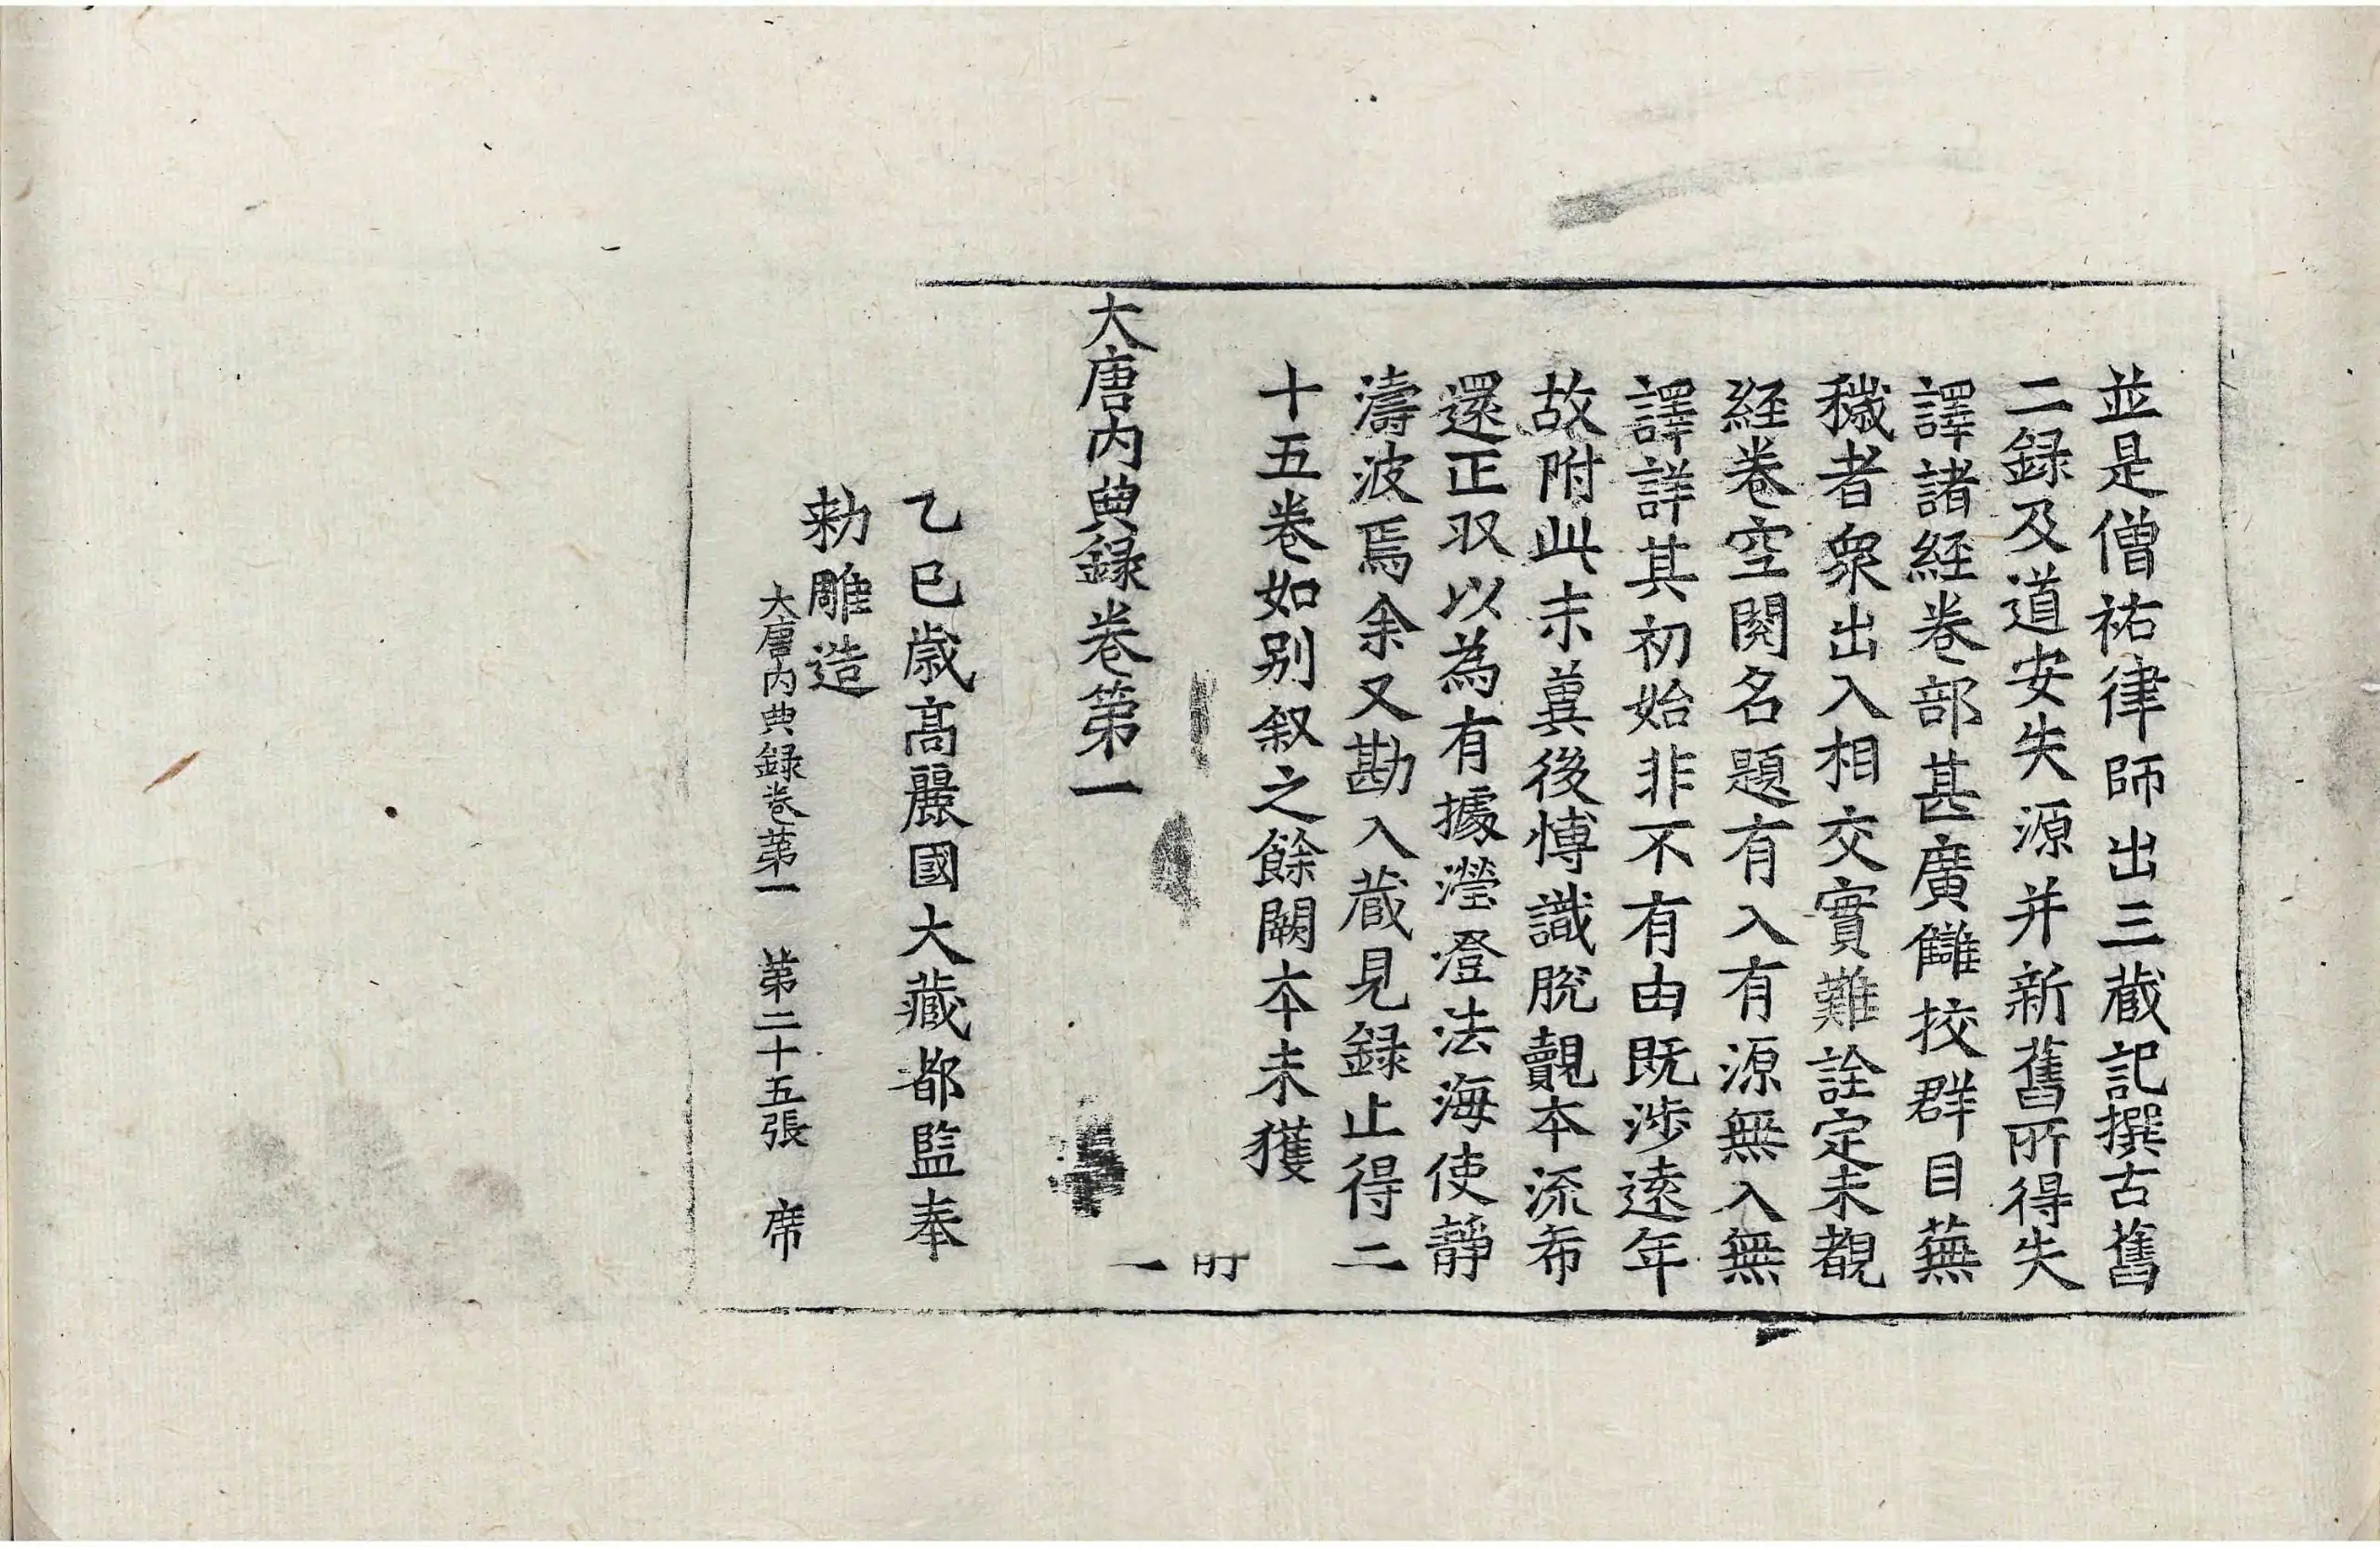 並是僧祐律師出三蔵記撰古舊
二録及道安失源并新舊所得失
譯諸経卷部甚廣讎挍群目蕪
穢者衆出入相交實難詮定未覩
経卷空閱名題有入有源無入無
譯詳其初始非不有由既渉遠年
故附此末兾後愽識脫覿本流希
還正収以為有據瀅澄法海使靜
濤波焉余又勘入蔵見録止得二
十五卷如別叙之餘闕本未獲
大唐內典録卷第一
乙巳歲高麗國大藏都監奉
勅雕造
大唐內典録卷第一 第二十五張 席